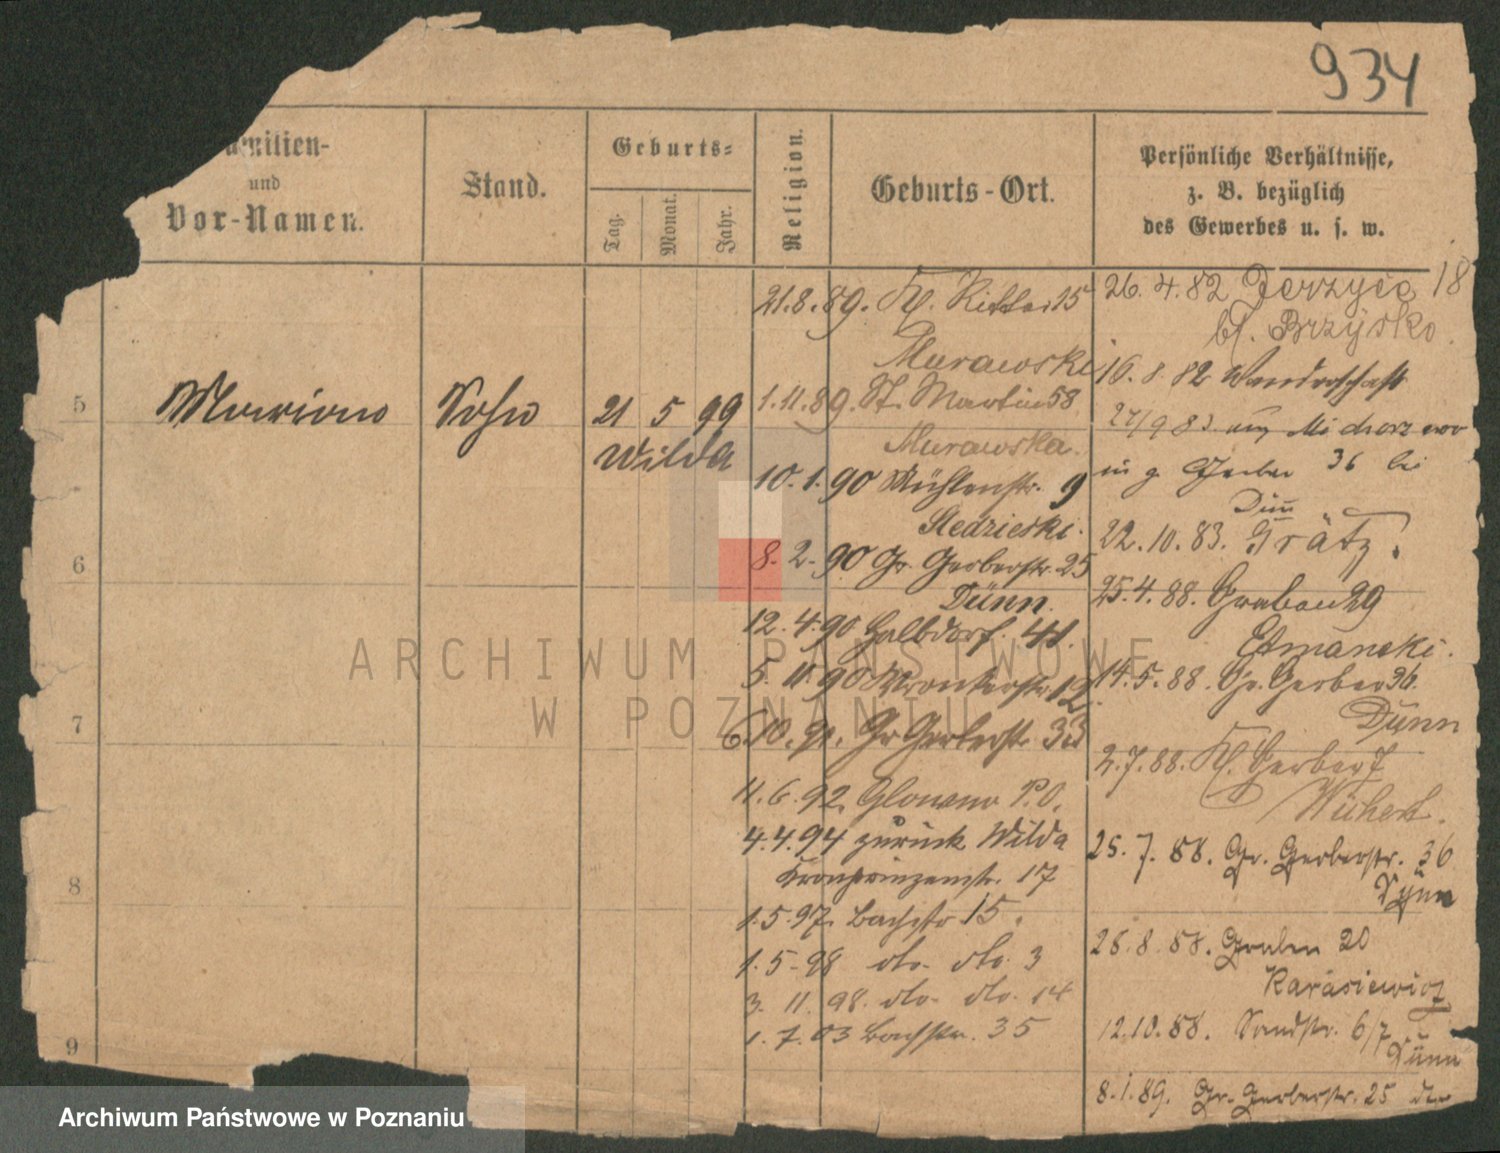 934
Familien-
und
Vor-Namen.
Stand.
Geburts-
Tag.
Monat.
Jahr.
Religion.
Geburts-Ort.
Persönliche Verhältnisse,
z. B. bezüglich
des Gewerbes u. s. w.
5 Sohn 21 5 99
Wilda
6
7
8
9
21.8.89. Kl. Ritter 15
Murawski
1.11.89. St. Martin 58
Murawska.
10.1.90 Mühlenstr. 9
Sledzieski.
8.2.90 Gr. Gerberstr. 25
Dünn.
12.4.90 Halbdorf. 41.
5.11.90 12
6.10.91. Gr Gerberstr. 33
11.6.92. Glowno P.O.
4.4.94 zurück Wilda
Kronprinzenstr. 17
1.5.97. Bachstr 15.
1.5-98 dto. dto. 3
3.11.98. dto. dto. 14
1.7.03 Bachstr. 35
26.4.82 Jerzyce 18
bj. Brzysko.
16.8.82 Wanderschaft
27/9 83
Gerber 36 bei
Dünn
22.10.83. Grätz.
25.4.88. Graben 29
Etmanski.
14.5.88. Gr. Gerber 36.
Dünn
2.7.88. Kl. Gerber 7
Wichert.
25.7.88. Gr. Gerberstr. 36
Dünn
26.8.88. Graben 20
Karasiewicz
12.10.88. Sandstr. 6/7
Dünn
8.1.89. Gr. Gerberstr. 25
ARCHIWUM PAŃSTWOWE
W POZNANIU
Archiwum Państwowe w Poznaniu